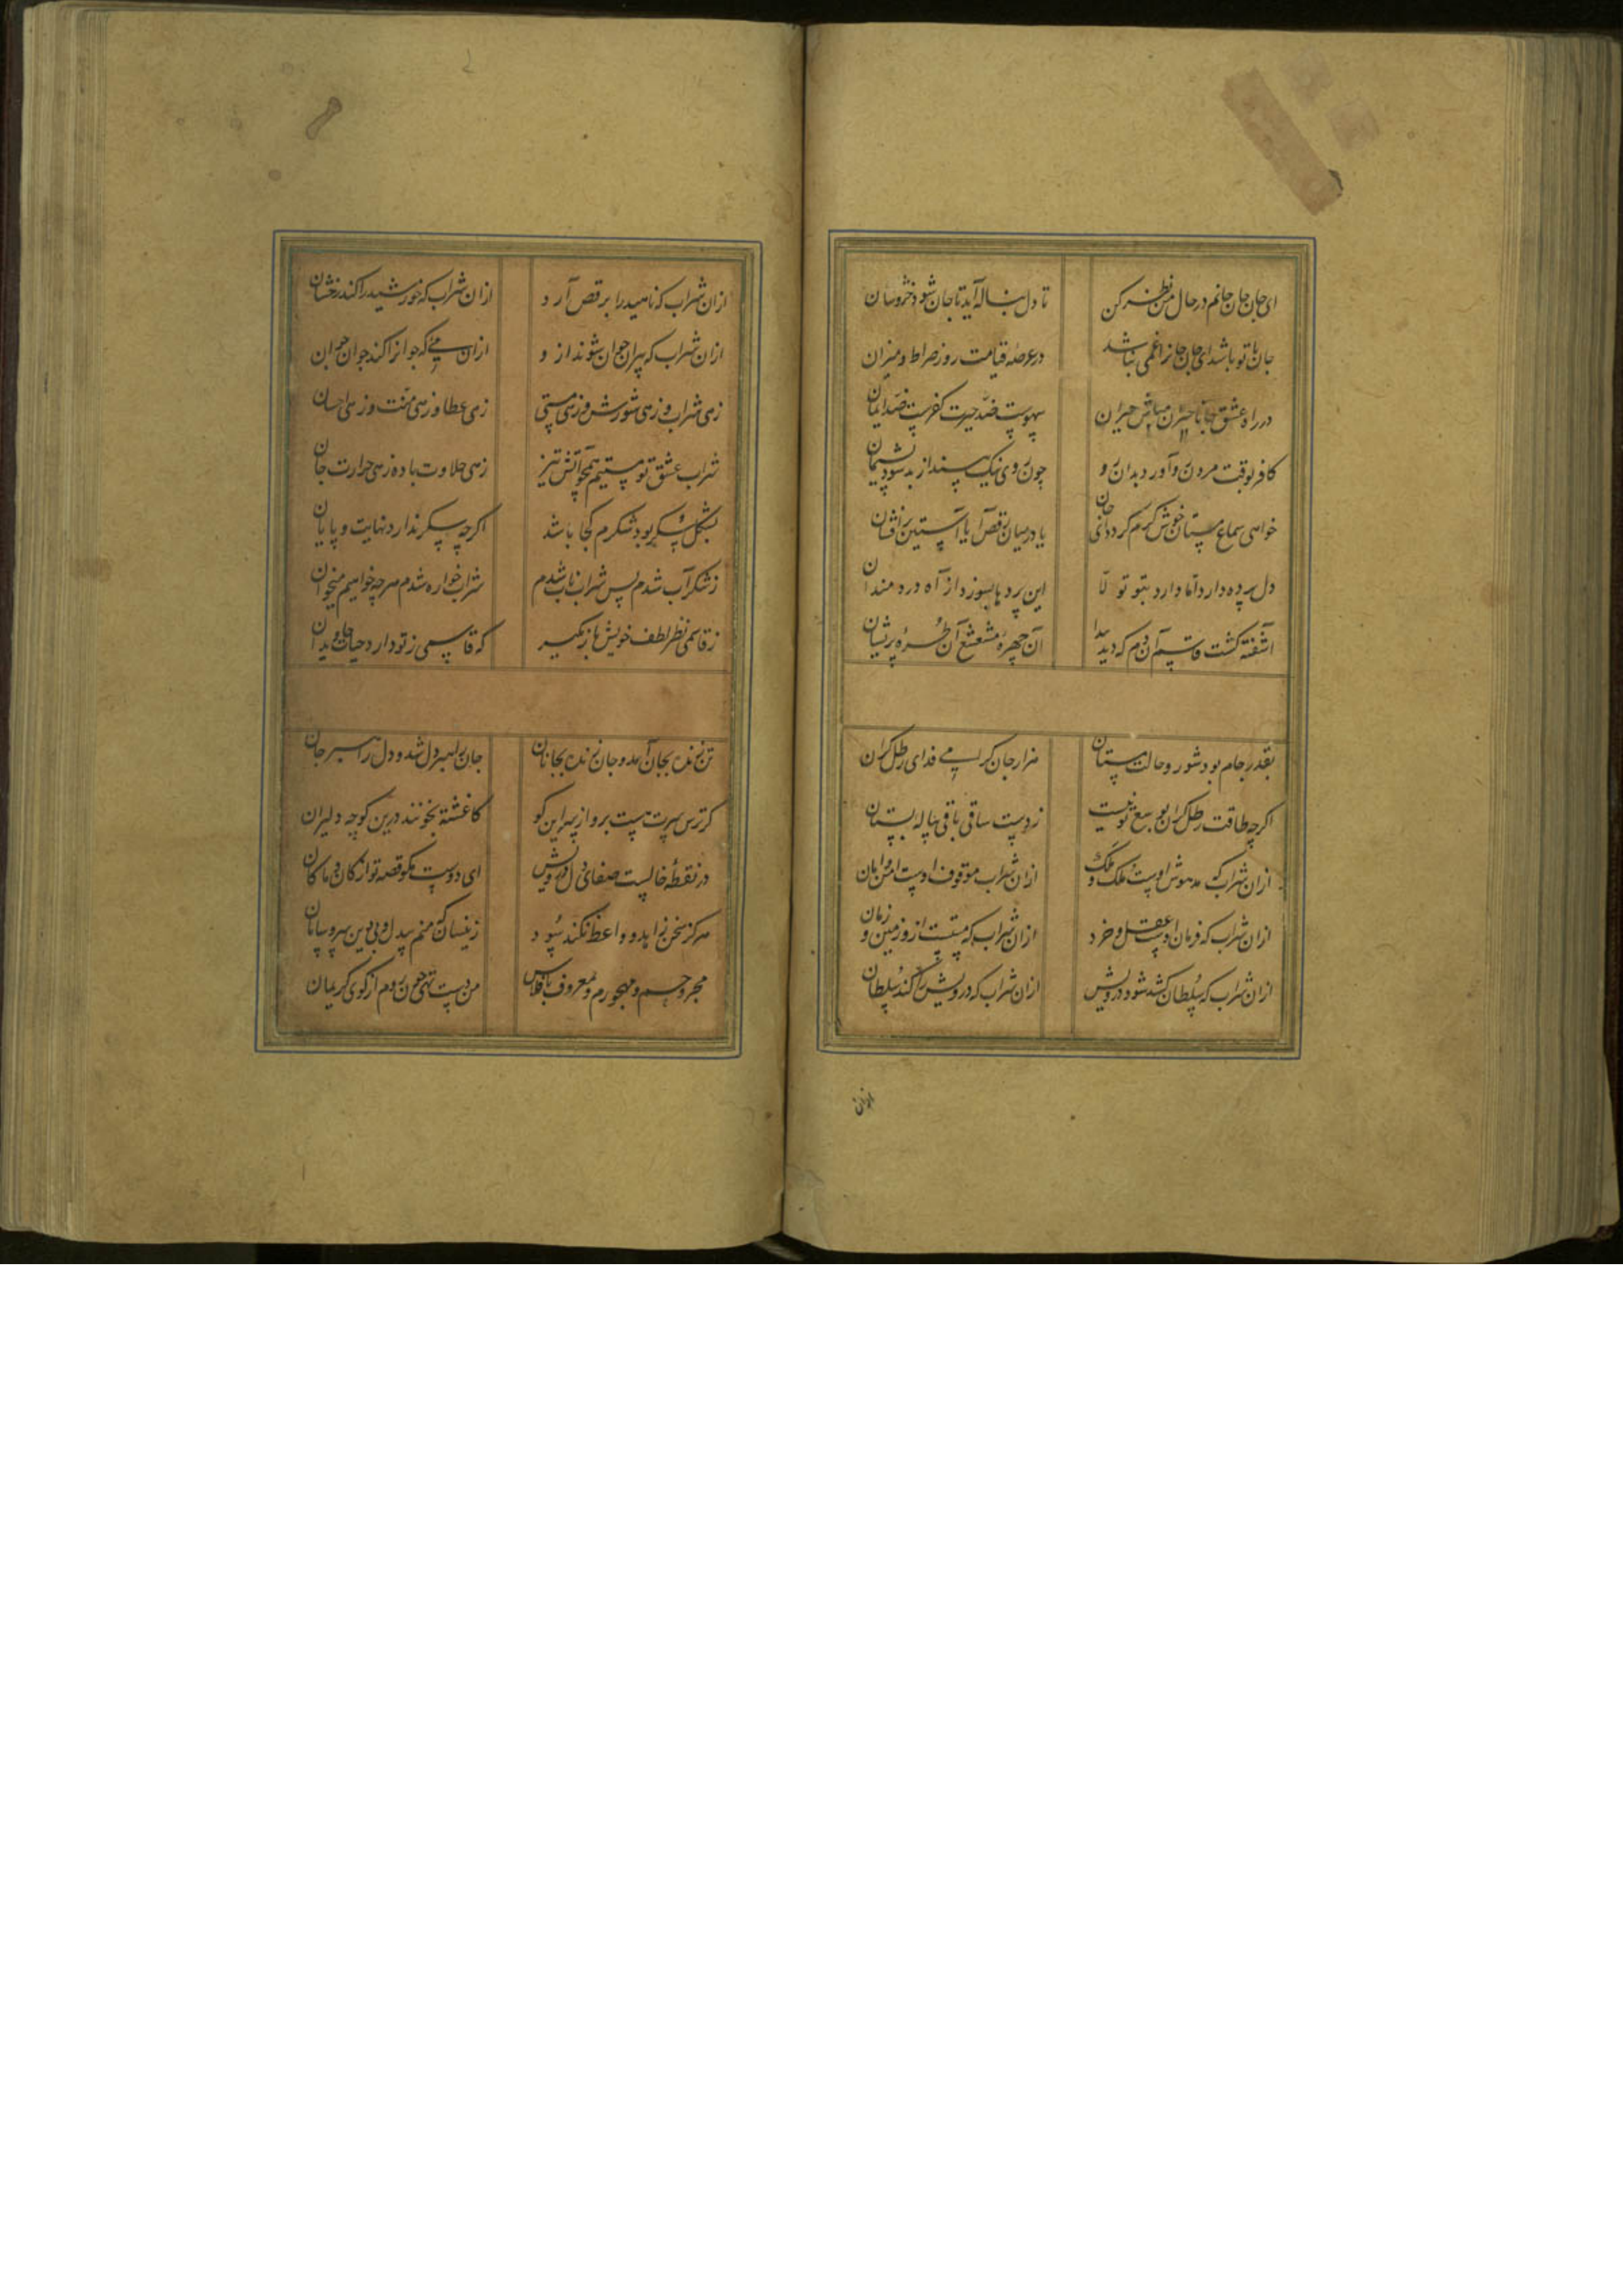 ای جان جان جانم در حال من نظر کن تا دل بناله آید تا جان شود خروشان
جان با تو باشد ای جان جانرا غمی نباشد در عرصه قیامت روز صراط و میزان
در راه عشق جانا حیران مباش حیران بهوتست ضد حیرت کفرست ضد ایمان
کافر بوقت مردن رو آورد بدان رو چون روی نیک بیند از بد شود پشیمان
خواهی سماع مستان خوش گرم گردد ای جان یا در میان رقص آ یا آستین برافشان
دل پرده دارد اما دارد بتو تولا این پردها بسوزد از آه دردمندان
آشفته کشت قاسم آن دم که دید پیدا آن چهره مشعشع آن طره پریشان
بقدر جام بود شور و حالت مستان هزار جان کرامی فدای رطل کران
اکرچه طاقت رطل کران بوسع تو نیست ز دست ساقی باقی پیاله بستان
ازان شراب که مدهوش اوست ملک و ملک ازان شراب که موقوف اوست امن و امان
ازان شراب که فرمان اوست عقل و خرد ازان شراب که مستست ازو زمین و زمان
ازان شراب که سلطان کشد شود درویش ازان شراب که درویش را کند سلطان
ازان
ازان شراب که ناهید را برقص آرد ازان شراب که خورشید را کند رخشان
ازان شراب که پیران جوان شوند ازو ازان میی که جوانرا کند جوان جوان
زهی شراب و زهی شورش و زهی مستی زهی عطا و زهی منت و زهی احسان
شراب عشق تو مستیم همچو آتش تیز زهی حلاوت باده زهی حرارت جان
بشکل شکر بود شکرم کجا باشد اکرچه شکر ندارد نهایت و پایان
ز شکر آب شدم پس شراب ناب شدم شراب خواره شدم هرچه خواهیم میخوان
ز قاسمی نظر لطف خویش باز مکیر که قاسمی ز تو دارد حیات جاویدان
تن زنده بجان آمد و جان زنده بجانان جان رهبر دل شد و دل راهبر جان
کر ترس سرت هست برو از سر این کو کاغشته بخونند درین کوچه دلیران
در نقطه خالست صفای دل درویش ای دوست مکو قصه تو از کان و ز ماکان
هرکز سخن زاهد و واعظ نکند سود زینسان که منم بیدل و بی دین سر و سامان
مجروحم و مهجورم و معروف بافلاس من دست تهی چون روم از کوی کریمان